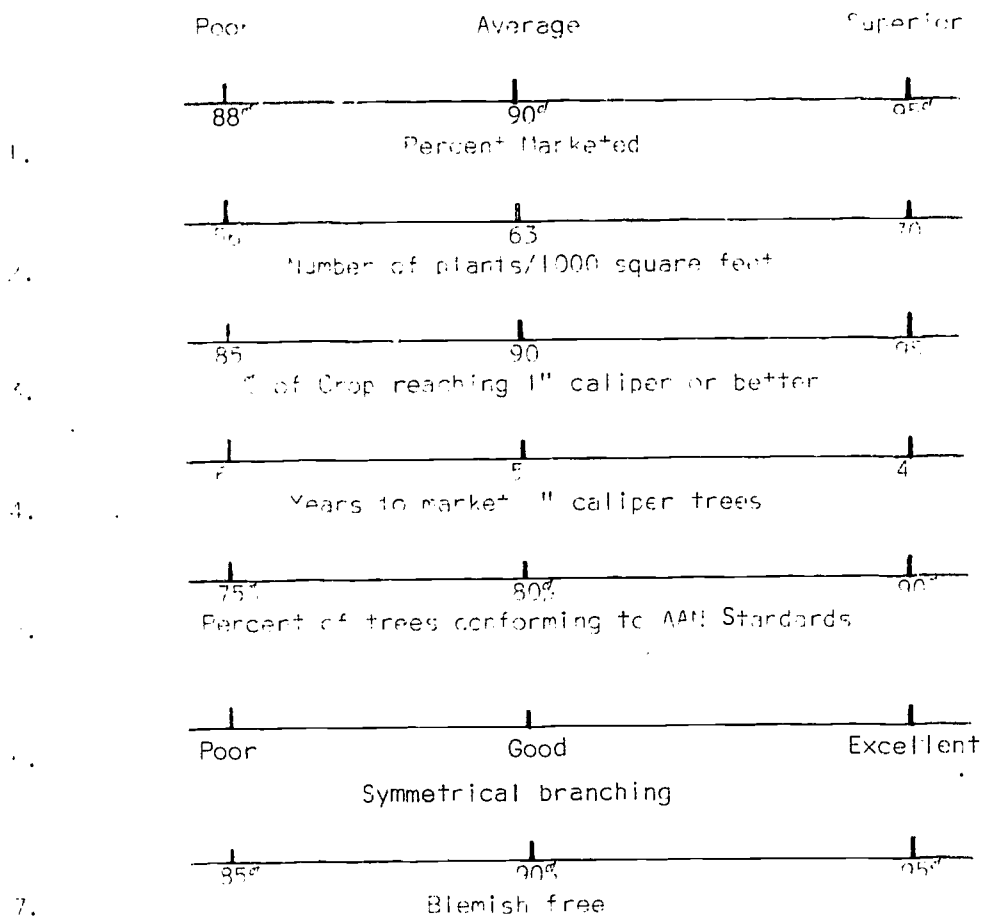 Poor Average Superior
88% 90% 95%
1. Percent Marketed
56 63 70
2. Number of plants/1000 square feet
85 90 95
3. % of Crop reaching 1" caliper or better
6 5 4
4. Years to market " caliper trees
75% 80% 90%
Percent of trees conforming to AAN Standards
Poor Good Excellent
Symmetrical branching
85% 90% 95%
7. Blemish free